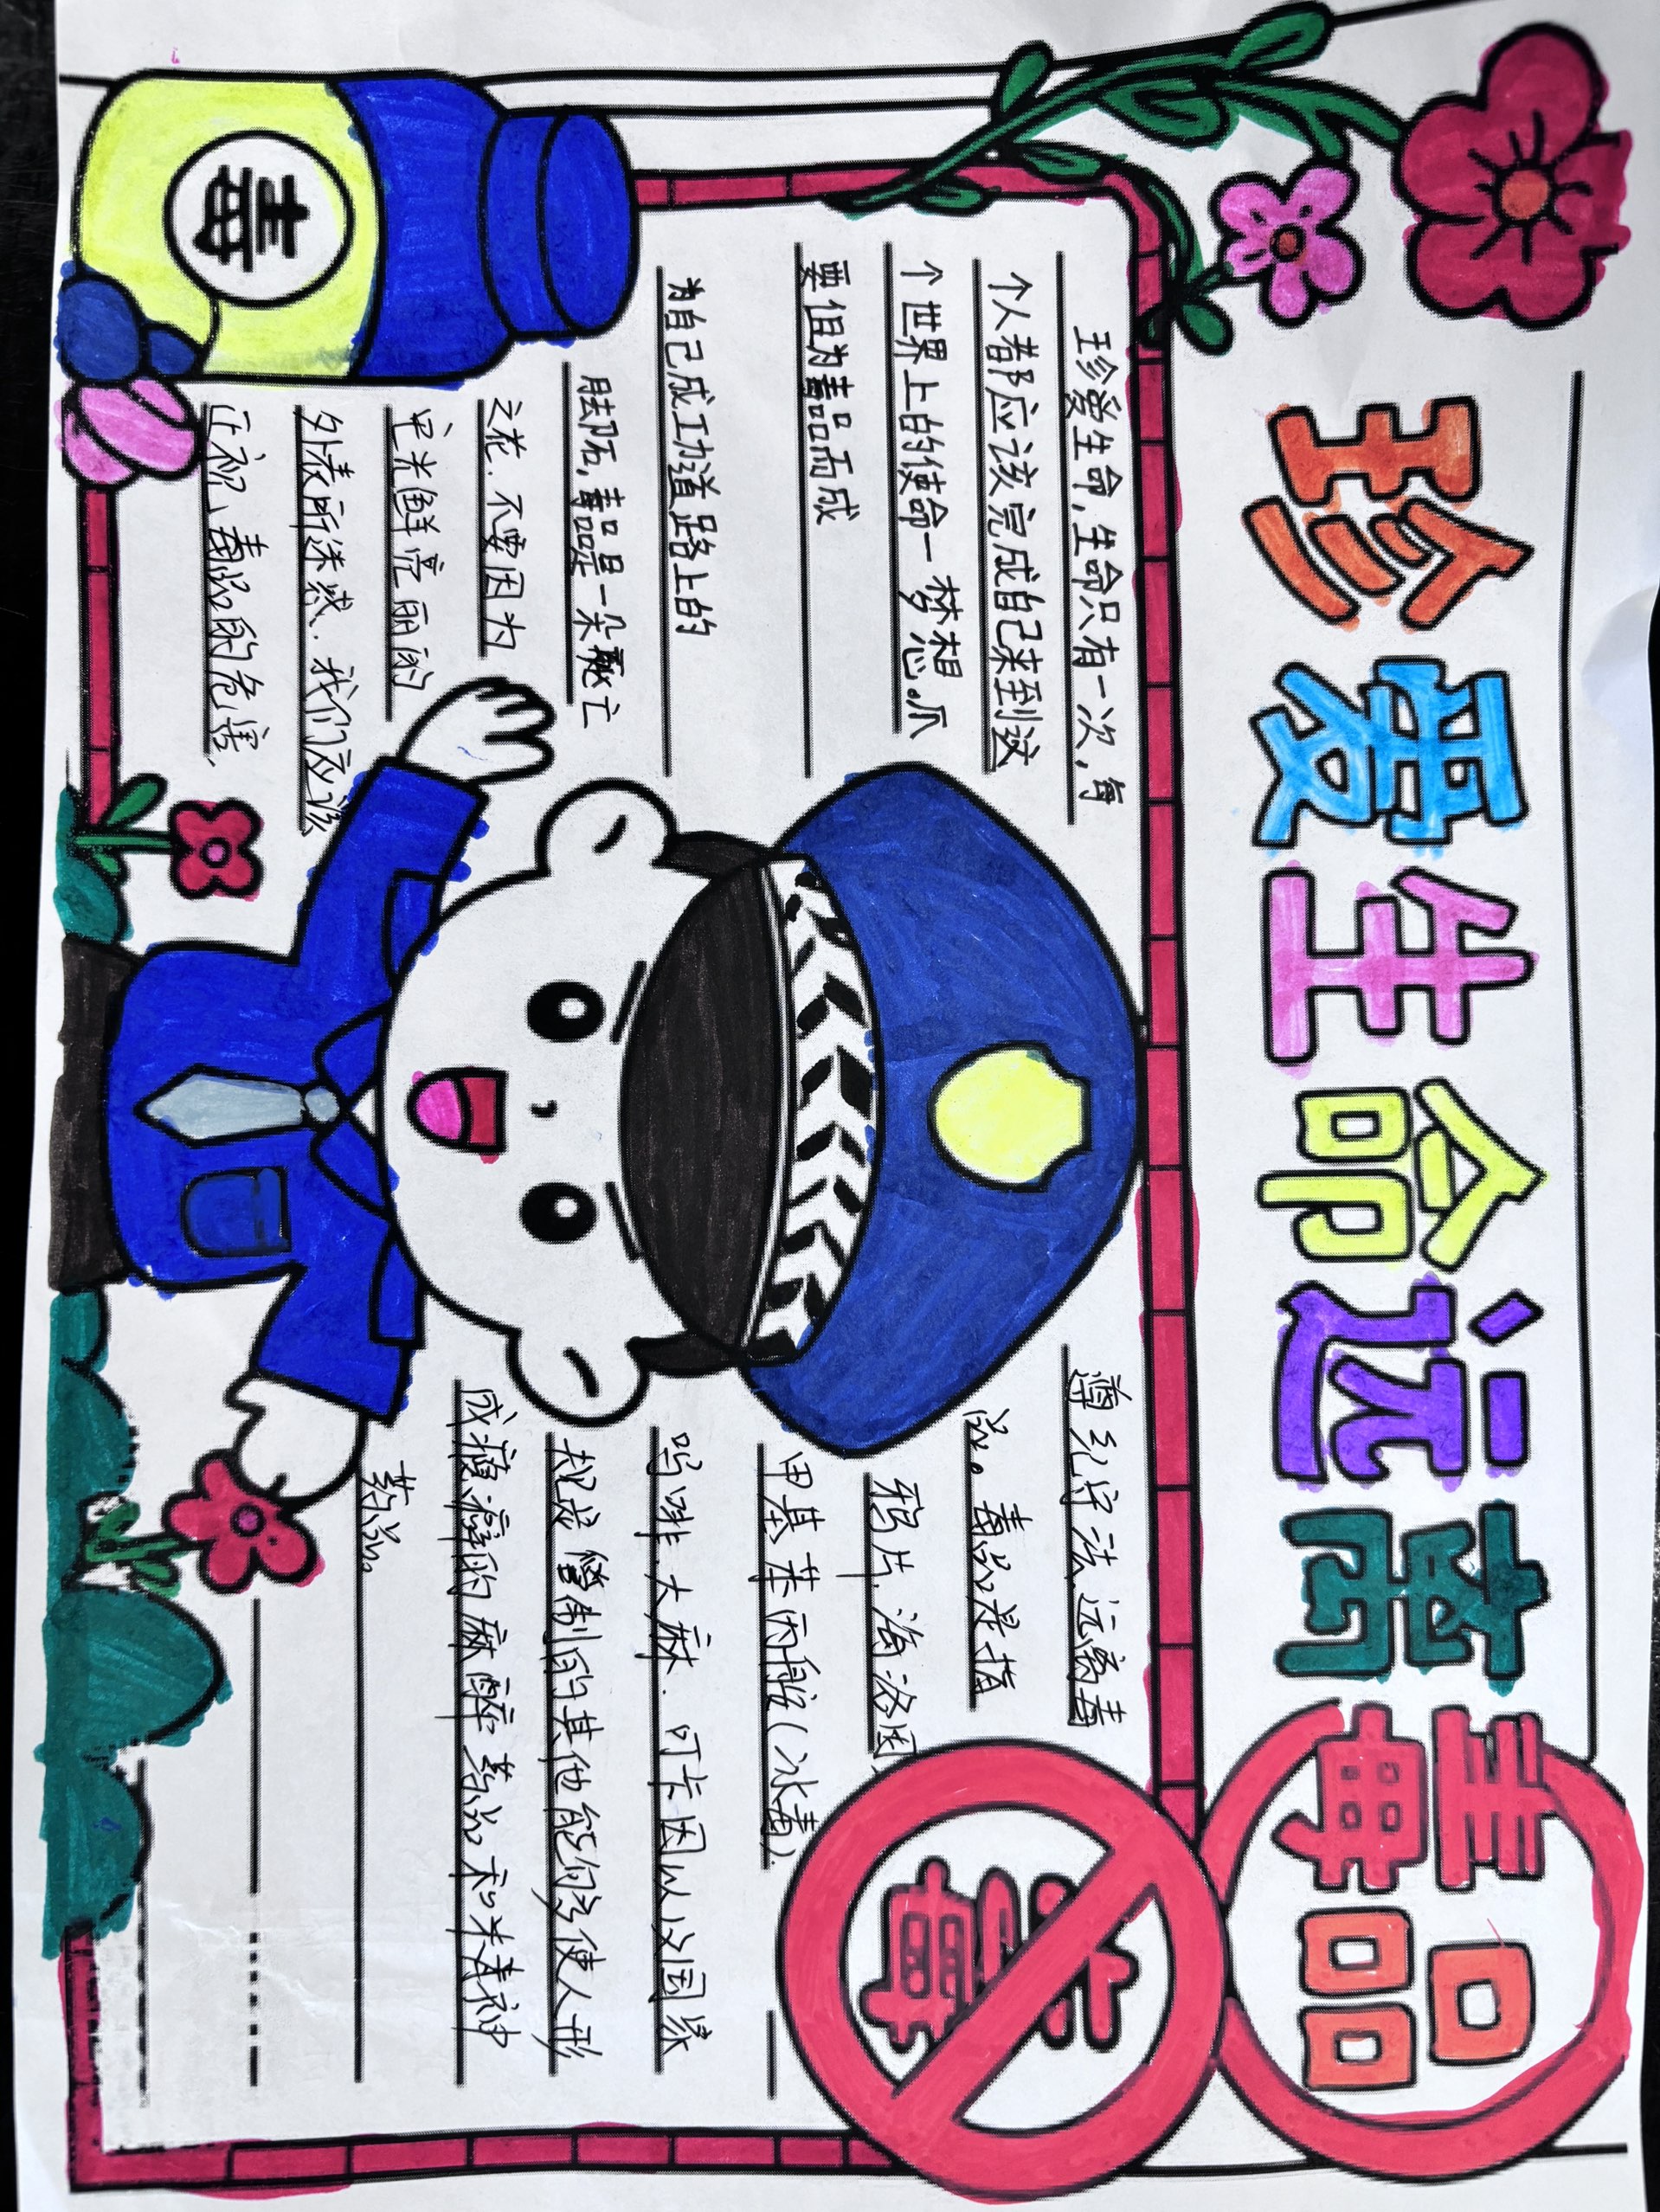 珍爱生命远离毒品
珍爱生命,生命只有一次,每
个人都应该完成自己来到这
个世界上的使命一梦想.
要但为毒品而成
为自己成工力道路上的
毒品是一朵
之花.不要因为
它光鲜亮丽的
外表所迷惑.我们应该
毒品的危害.
毒
遵纪守法.远离毒
品。毒品是指
鸦片.海洛因
甲基苯丙胺(冰毒).
吗啡.大麻.可卡因以及国家
规定管制的其他能够使人形
成瘾癖的麻醉药品和精神
药品。
毒